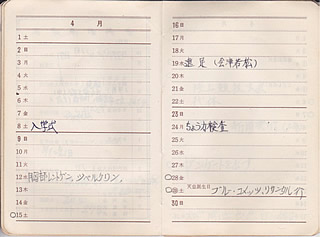 4 月
1 土
2 日
3 月
4 火
5 水
6 木
7 金
8 土 入学式
9 日
10 月
11 火
12 水 胸部レントゲン、ツベルクリン、
13 木
14 金
○15 土
16 日
17 月
18 火
19 水 遠足(会津若松)
20 木
21 金
22 土
23 日
24 月 ちょう力検査
25 火
26 水
27 木
○28 金
○㉙ 土 天皇誕生日 ブルー・コメッツ、リサイタル行
30 日